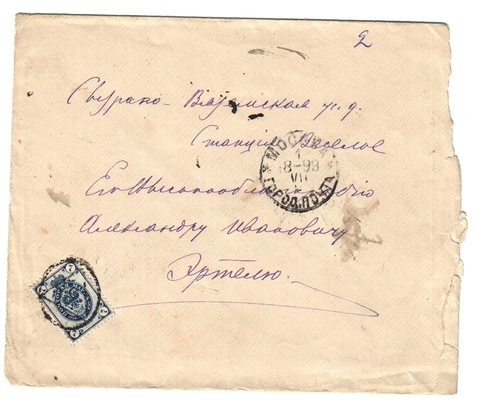 2
Сызрано-Вяземская ж. д.
Станция Веселое
Его Высокоблагородию
Александру Ивановичу
Эртелю.
МОСКВА
1
8-98
VII
ГОРОД. ПОЧТА
7
7
7
7